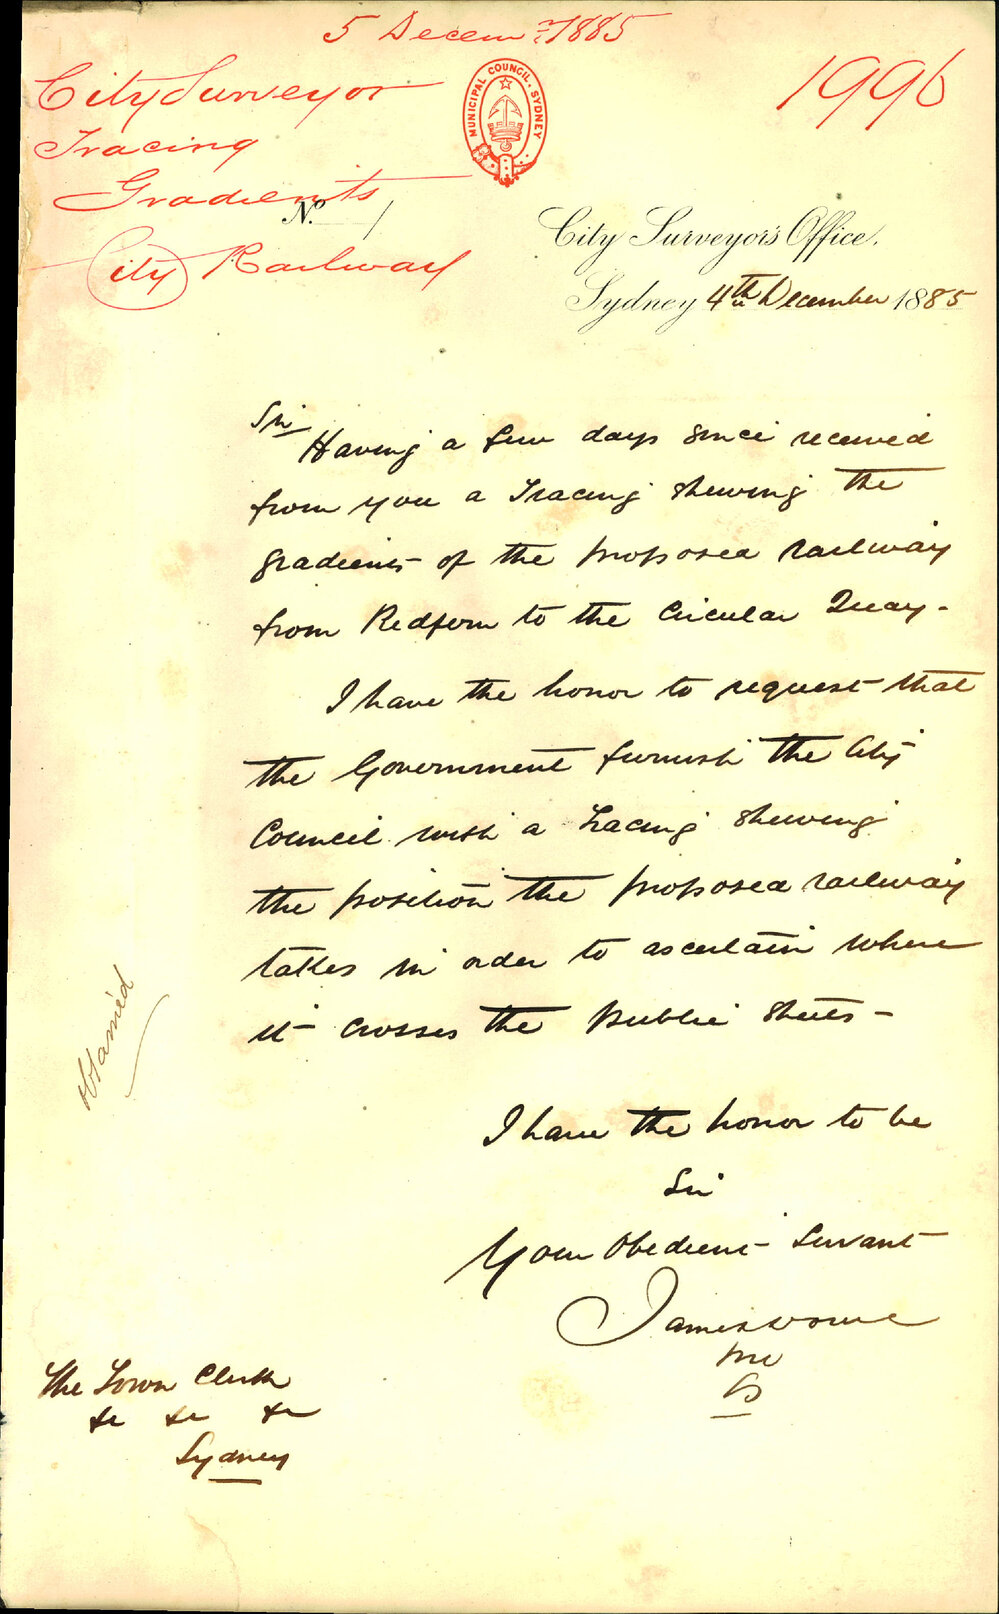 5 Decemr 1885
City Surveyor
Tracing
Gradients
City Railway
1996
MUNICIPAL COUNCIL. SYDNEY
No. 1
City Surveyor's Office.
Sydney 4th December 1885
Sir
Having a few days since received
from you a Tracing shewing the
gradients of the proposed railway
from Redfern to the Circular Quay -
I have the honor to request that
the Government furnish the City
Council with a Tracing shewing
the position the proposed railway
takes in order to ascertain where
it crosses the Public Streets -
obtained
I have the honor to be
Sir
Your Obedient Servant
James
The Town Clerk
&c &c &c
Sydney